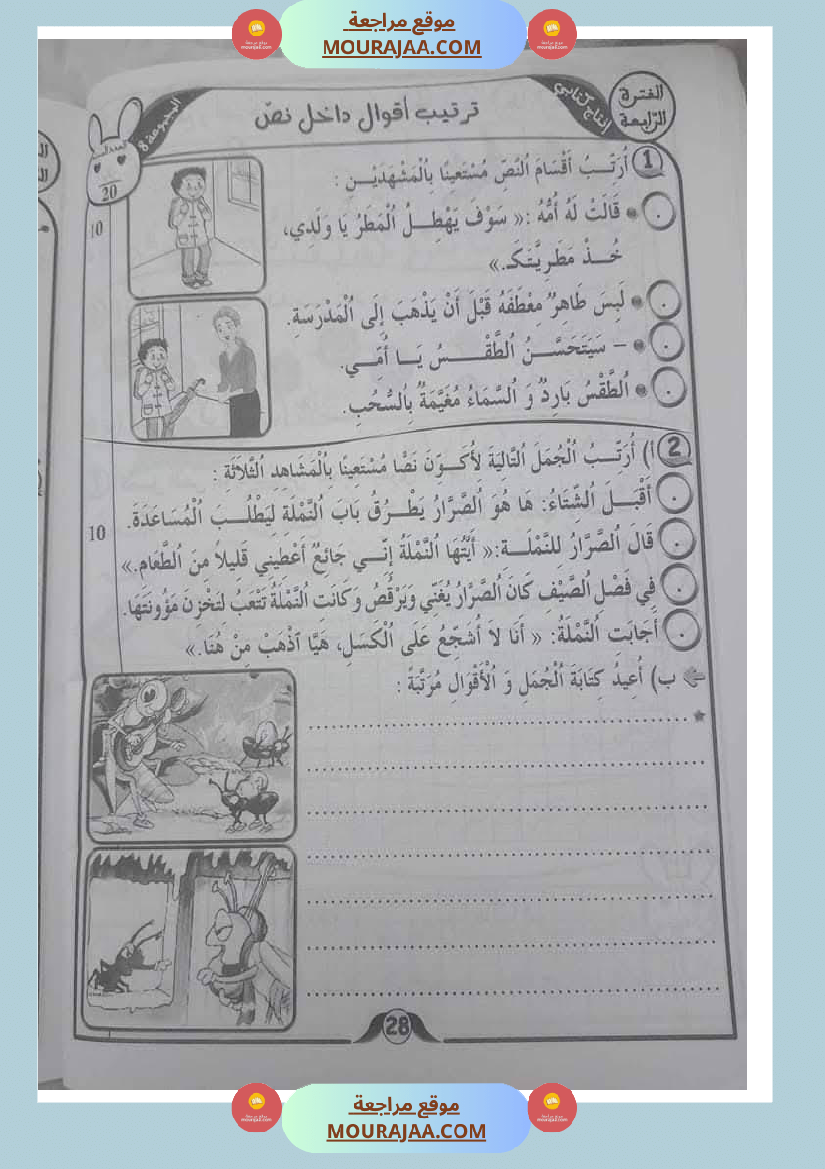 موقع مراجعة
MOURAJAA.COM
الفترة الرّابعة
إنتاج كتابي
ترتيب أقوال داخل نصّ
المجموعة 8
20
1 أُرَتِّبُ أَقْسَامَ ٱلنَّصِّ مُسْتَعِينًا بِالْمَشْهَدَيْنِ :
10
• قَالَتْ لَهُ أُمُّهُ :« سَوْفَ يَهْطِلُ ٱلْمَطَرُ يَا وَلَدِي،
خُذْ مَطَرِيَّتَكَ.»
• لَبِسَ طَاهِرٌ مِعْطَفَهُ قَبْلَ أَنْ يَذْهَبَ إِلَى ٱلْمَدْرَسَةِ.
• – سَيَتَحَسَّنُ ٱلطَّقْسُ يَا أُمِّي.
• ٱلطَّقْسُ بَارِدٌ وَ ٱلسَّمَاءُ مُغَيَّمَةٌ بِٱلسُّحُبِ.
2 أ) أُرَتِّبُ ٱلْجُمَلَ ٱلتَّالِيَةَ لِأُكَوِّنَ نَصًّا مُسْتَعِينًا بِٱلْمَشَاهِدِ ٱلثَّلَاثَةِ :
أَقْبَلَ ٱلشِّتَاءُ: هَا هُوَ ٱلصَّرَّارُ يَطْرُقُ بَابَ ٱلنَّمْلَةِ لِيَطْلُبَ ٱلْمُسَاعَدَةَ.
10
قَالَ ٱلصَّرَّارُ لِلنَّمْلَةِ:« أَيَّتُهَا ٱلنَّمْلَةُ إِنِّي جَائِعٌ أَعْطِينِي قَلِيلاً مِنَ ٱلطَّعَامِ.»
فِي فَصْلِ ٱلصَّيْفِ كَانَ ٱلصَّرَّارُ يُغَنِّي وَيَرْقُصُ وَكَانَتِ ٱلنَّمْلَةُ تَتْعَبُ لِتَخْزِنَ مَؤُونَتَهَا.
أَجَابَتِ ٱلنَّمْلَةُ: « أَنَا لاَ أُشَجِّعُ عَلَى ٱلْكَسَلِ، هَيَّا ٱذْهَبْ مِنْ هُنَا.»
ب) أُعِيدُ كِتَابَةَ ٱلْجُمَلِ وَ ٱلْأَقْوَالِ مُرَتَّبَةً :
28
موقع مراجعة
MOURAJAA.COM